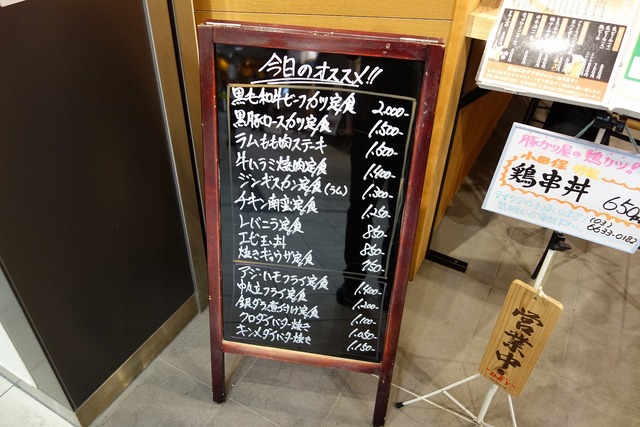 今日のオススメ!!
黒毛和牛ビーフカツ定食 2,000-
黒豚ロースカツ定食 1,500-
ラムもも肉ステーキ 1,600-
牛ハラミ焼肉定食 1,400-
ジンギスカン定食(ラム) 1,300-
チキン南蛮定食 1,250-
レバニラ定食 850-
エビ玉丼 850-
焼きギョウザ定食 750-
アジ・ハモフライ定食 1,400-
帆立フライ定食 1,200-
銀ダラ煮付け定食 1,100-
クロダイバター焼き 1,050-
キンメダイバター焼き 1,150-
豚カツ屋の鶏カツ!
鶏串丼 650
(03)
6633-0182
営業中